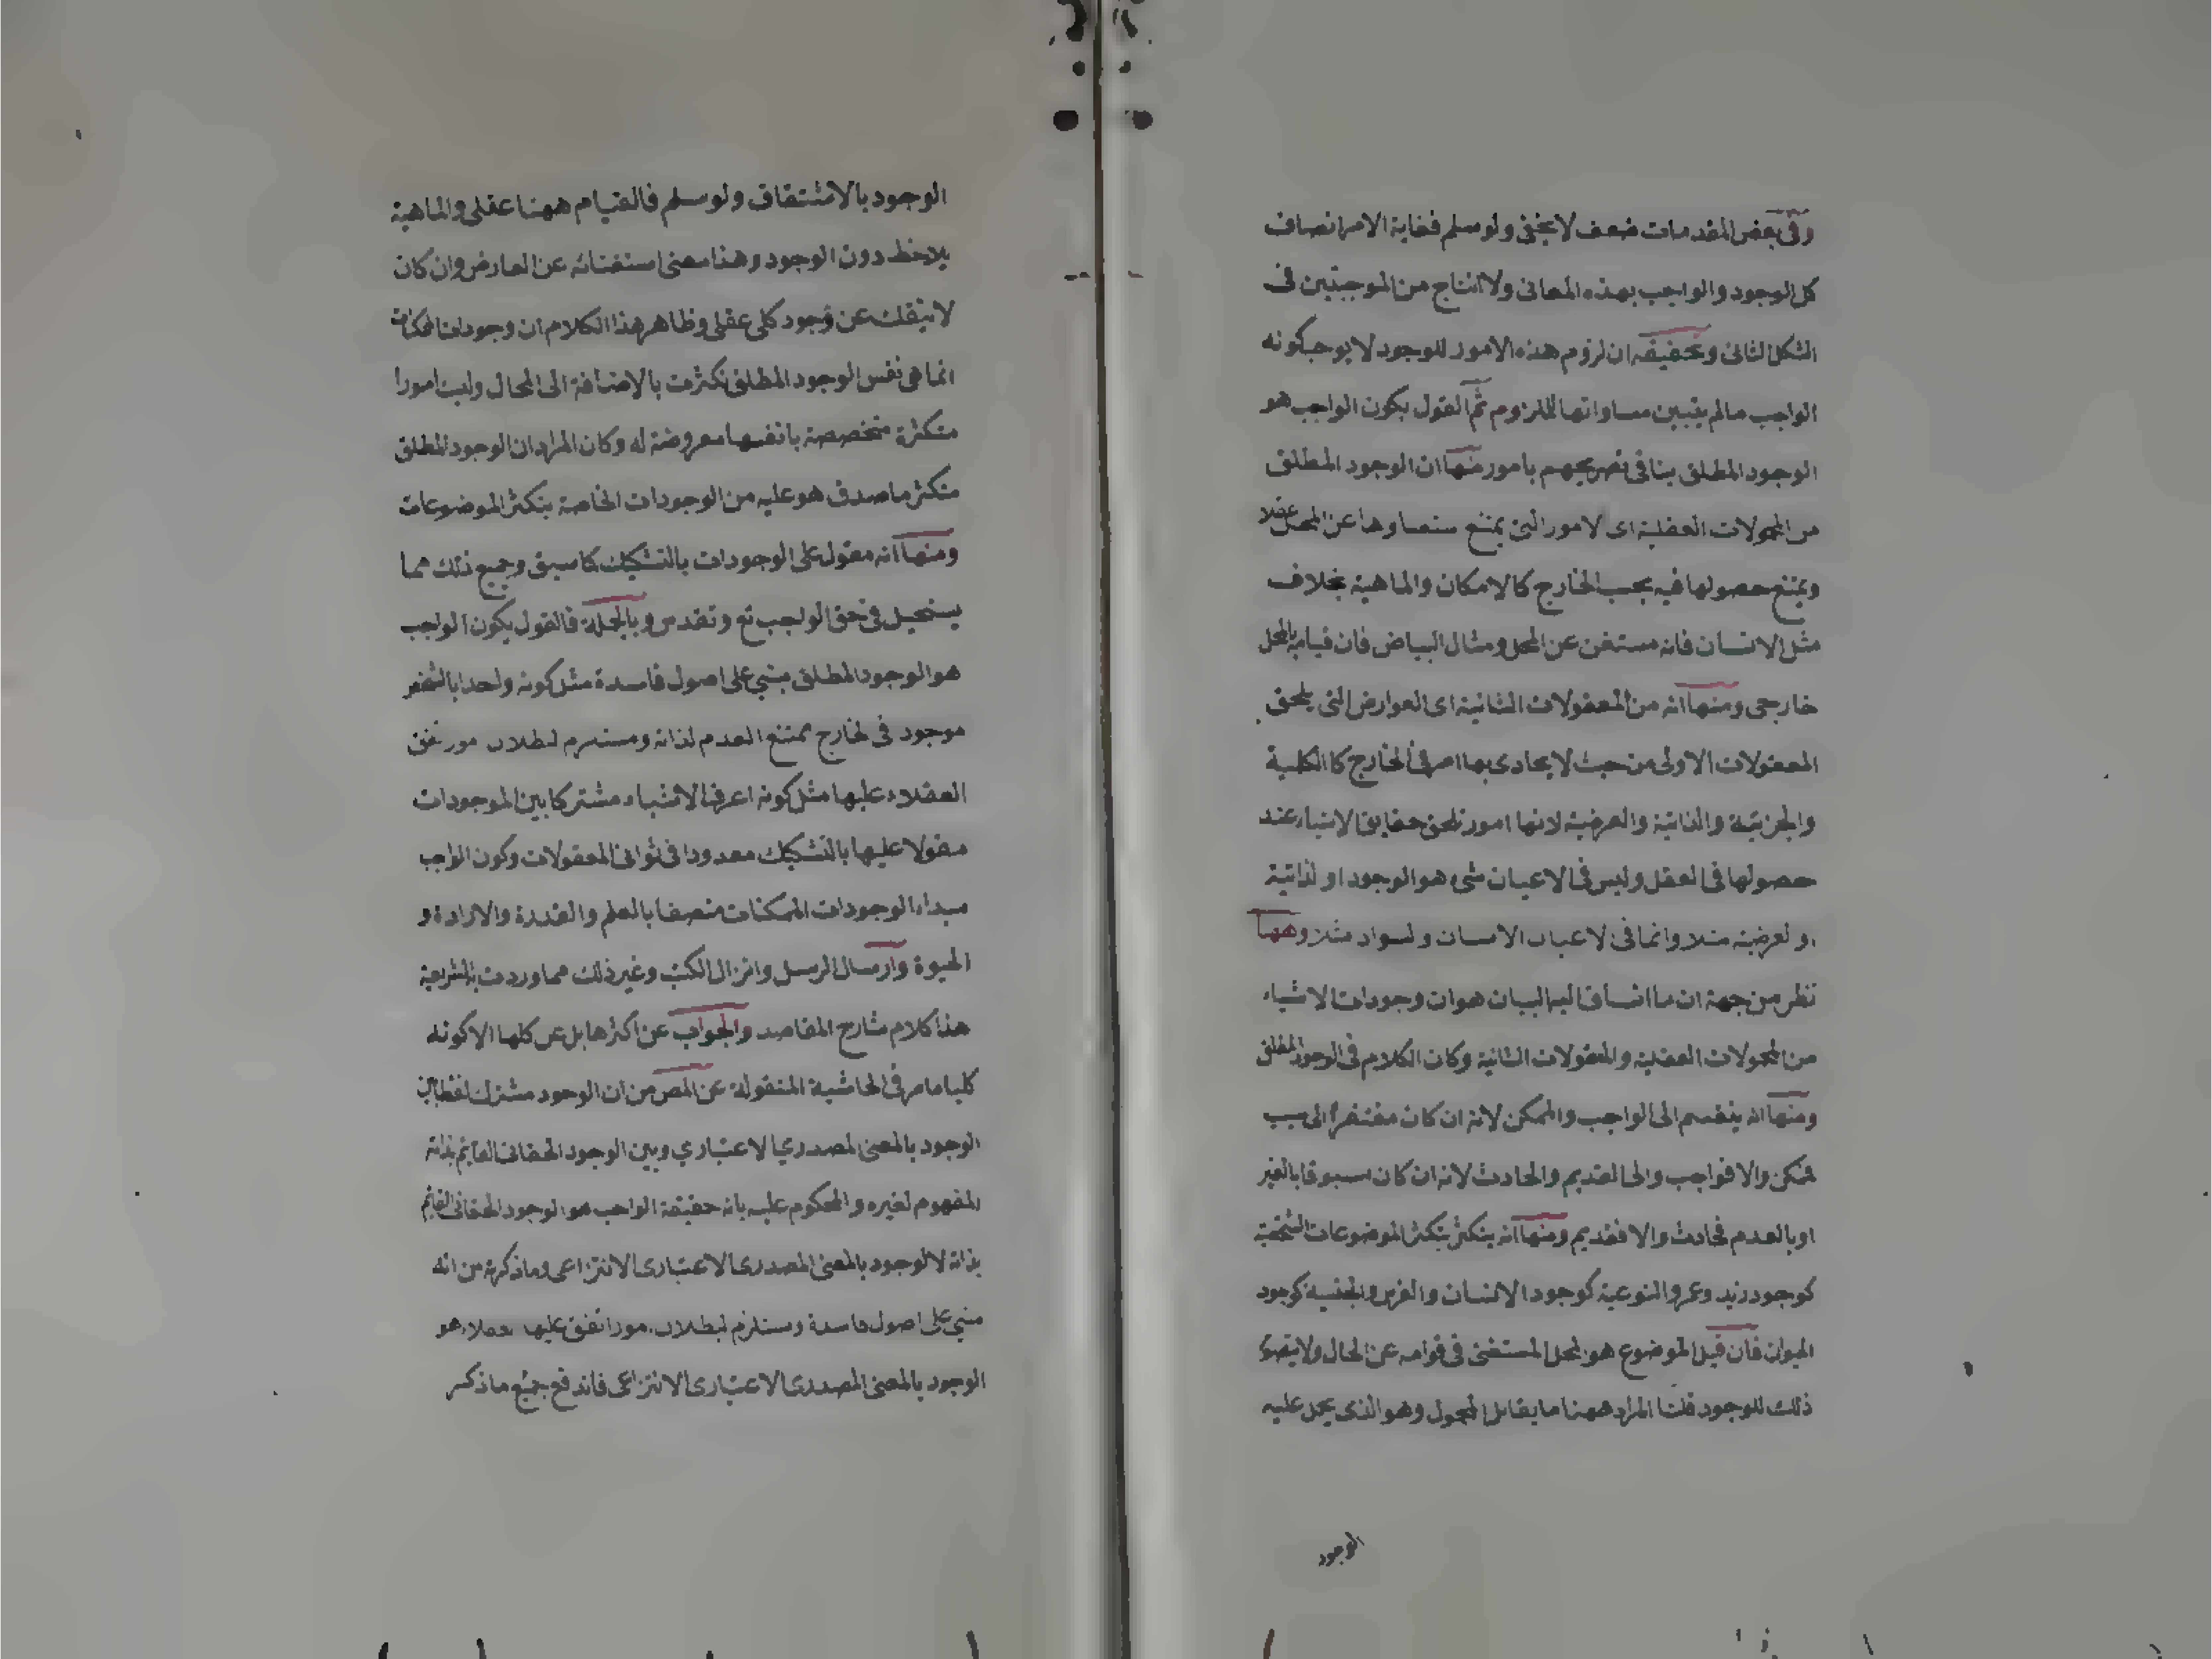 وفى بعض المقدمات ضعف لا يخفى ولو سلم فغاية الامر اتصاف
كل الوجود والواجب بهذه المعانى ولا انتاج من الموجبتين فى
الشكل الثانى وتحقيقه ان لزوم هذه الامور للوجود لا يوجب كونه
الواجب مالم يتبين مساواتها للملزوم ثم القول بكون الواجب هو
الوجود المطلق ينافى تصريحهم بامور منها ان الوجود المطلق
من المحمولات العقلية اى لامور التى يمتنع عن المحل عقلا
ويمتنع حصولها فيه بحسب الخارج كالامكان والماهية بخلاف
مثل الانسان فانه مستغن عن المحل ومثال البياض فان قيامه بالمحل
خارجى ومنها انه من المعقولات الثانية اى العوارض التى يلحق
المعقولات الاولى من حيث لا يحاذى بها امر فى الخارج كالكلية
والجزئية والذاتية والعرضية لانها امور تلحق حقايق الاشياء عند
حصولها فى العقل وليس فى الاعيان شىء هو الوجود او لذاتية
او لعرضية مثلا وانما فى لاعيان الانسان ولسواد مثلا وههنا
نظر من جهة ان ما انساق اليه البيان هو ان وجودات الاشياء
من المحمولات العقلية والمعقولات الثانية وكان الكلام فى الوجود المطلق
ومنها انه ينقسم الى الواجب والممكن لانه ان كان مفتقرا الى سبب
فمكن والا فواجب والى القديم والحادث لانه ان كان مسبوقا بالغير
او بالعدم فحادث والا فقديم ومنها انه يتكثر بتكثر الموضوعات الشخصية
كوجود زيد وعمرو النوعية كوجود الانسان والفرس والجنسية كوجود
الحيوان فان قيل الموضوع هو المحل المستغنى فى قوامه عن الحال ولا يتصور
ذلك للوجود قلنا المراد ههنا ما يقابل المحمول وهو الذى يحمل عليه
الوجود
الوجود بالاشتقاق ولو سلم فالقيام ههنا عقلى والماهية
يلاحظ دون الوجود وهذا معنى استغنائه عن العارض وان كان
لا ينفك عن وجود كلى عقلى وظاهر هذا الكلام ان وجودات الممكنات
انما هى نفس الوجود المطلق تكثرت بالاضافة الى المحال وليست امورا
متكثرة متخصصة بانفسها معروضة له وكان المراد ان الوجود المطلق
متكثر ما صدق هو عليه من الوجودات الخاصة بتكثر الموضوعات
ومنها انه مقول على الوجودات بالتشكيك كما سبق وجميع ذلك مما
يستحيل فى حق الواجب تع وتقدس وبالجملة فالقول بكون الواجب
هو الوجود المطلق مبنى على اصول فاسدة مثل كونه واحدا بالشخص
موجود فى لخارج ممتنع العدم لذاته ومستلزم لبطلان مور تفق
العقلاء عليها مثل كونه اعرف الاشياء مشتركا بين الموجودات
مقولا عليها بالتشكيك معدودا فى ثوانى المعقولات وكون الواجب
مبداء الوجودات الممكنات متصفا بالعلم والقدرة والارادة و
الحيوة وارسال الرسل وانزال الكتب وغير ذلك مما وردت به الشريعة
هذا كلام شارح المقاصد والجواب عن اكثرها بل عن كلها الا كونه
كليا ما مر فى الحاشية المنقولة عن المص من ان الوجود مشترك لفظا بين
الوجود بالمعنى لمصدري الاعتباري وبين الوجود الحقانى القايم بذاته
المفهوم لغيره والمحكوم عليه بانه حقيقة الواجب هو الوجود الحقانى القايم
بذاته لا لوجود بالمعنى المصدرى الاعتبارى الانتزاعى وما ذكره من انه
مبنى على اصول فاسدة ومستلزم لبطلان مور اتفق عليها عقلاء هو
الوجود بالمعنى المصدرى الاعتبارى الانتزاعى فاندفع جميع ما ذكر